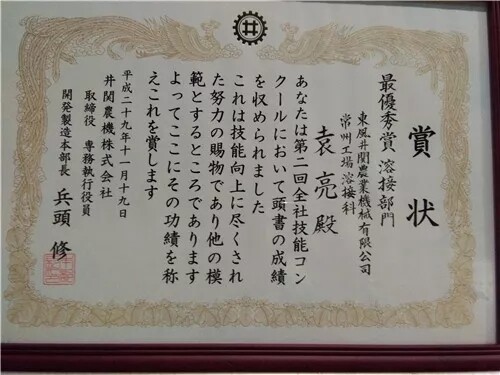 賞状
最優秀賞 溶接部門
東風井関農業機械有限公司
常州工場溶接科
袁亮殿
あなたは第二回全社技能コン
クールにおいて頭書の成績
を収められました
これは技能向上に尽くされ
た努力の賜物であり他の模
範とするところであります
よってここにその功績を称
えこれを賞します
平成二十九年十一月十九日
井関農機株式会社
取締役 専務執行役員
開発製造本部長 兵頭 修